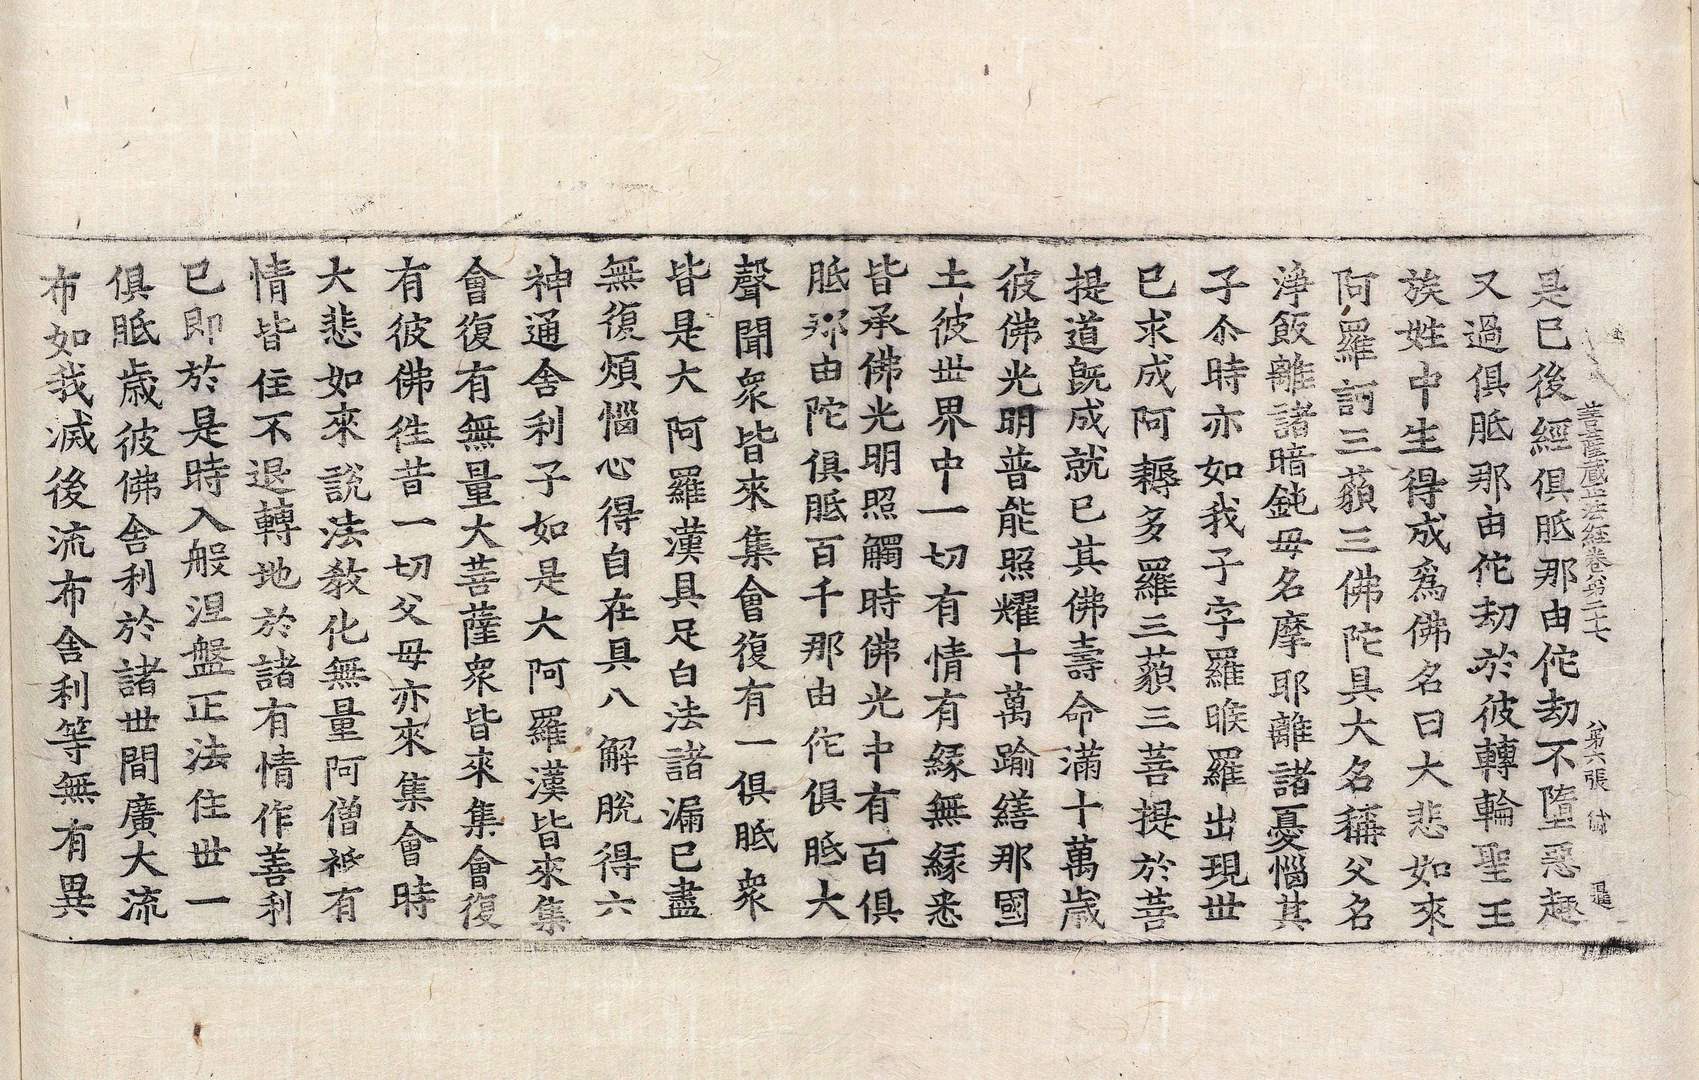 菩薩藏正法經卷第二十七　第六張
是已後經俱胝那由佗劫不墮惡趣
又過俱胝那由佗劫於彼轉輪聖王
族姓中生得成爲佛名曰大悲如來
阿羅訶三藐三佛陀具大名稱父名
淨飯離諸暗鈍母名摩耶離諸憂惱其
子尒時亦如我子字羅睺羅出現世
已求成阿耨多羅三藐三菩提於菩
提道旣成就已其佛壽命滿十萬歲
彼佛光明普能照耀十萬踰繕那國
土彼世界中一切有情有緣無緣悉
皆承佛光明照觸時佛光中有百俱
胝那由陀俱胝百千那由佗俱胝大
聲聞衆皆來集會復有一俱胝衆
皆是大阿羅漢具足白法諸漏已盡
無復煩惱心得自在具八解脫得六
神通舍利子如是大阿羅漢皆來集
會復有無量大菩薩衆皆來集會復
有彼佛徃昔一切父母亦來集會時
大悲如來說法教化無量阿僧祇有
情皆住不退轉地於諸有情作善利
已即於是時入般涅盤正法住世一
俱胝歲彼佛舍利於諸世間廣大流
布如我滅後流布舍利等無有異